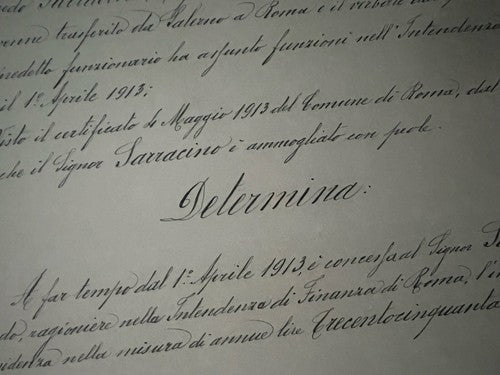 venne trasferito da Salerno a Roma e il verbale dal
predetto funzionario ha assunto funzioni nell'Intendenza
il 1º Aprile 1913;
Visto il certificato 4 Maggio 1913 del Comune di Roma, dal
che il Signor Sarracino è ammogliato con prole.
Determina:
A far tempo dal 1º Aprile 1913, è concessa al Signor
do, ragioniere nella Intendenza di Finanza di Roma, l'in
sidenza nella misura di annue lire Trecentocinquanta